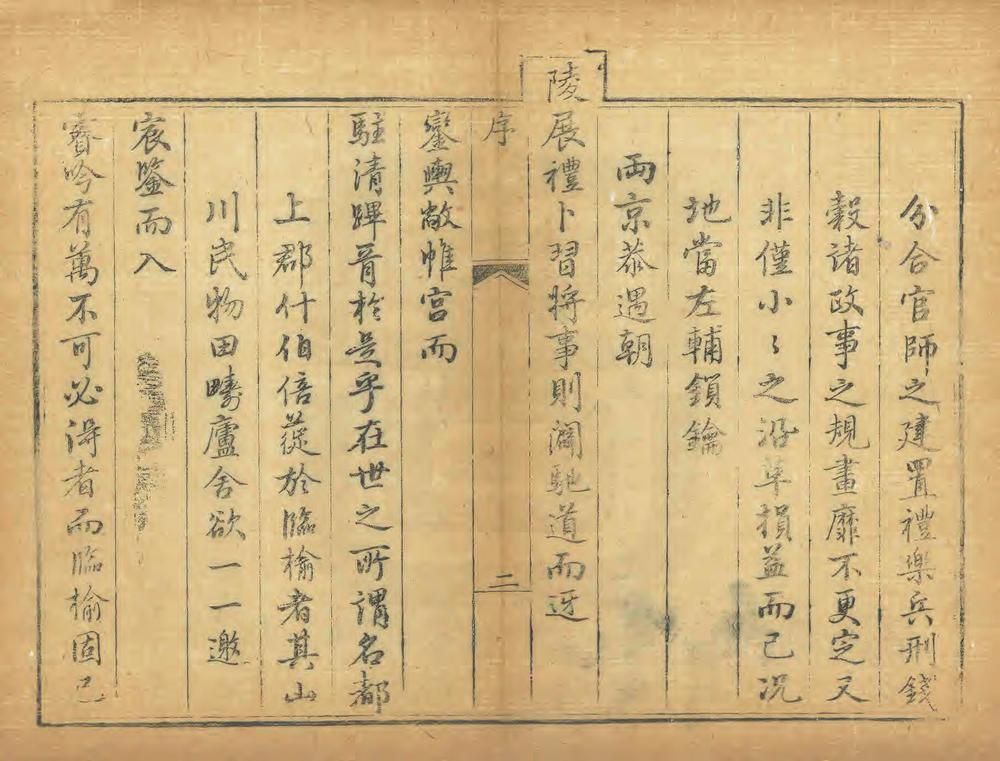 分合官師之建置禮樂兵刑錢
穀諸政事之規畫靡不更定又
非僅小〻之沿革損益而已况
地當左輔鎖鑰
兩京恭遇朝
陵展禮卜習將事則闢馳道而迓
序
二
鑾輿敞帷宮而
駐清蹕胥於是乎在世之所謂名都
上郡什伯倍蓰於臨榆者其山
川民物田疇廬舍欲一一邀
宸鑒而入
睿吟有萬不可必得者而臨榆固已